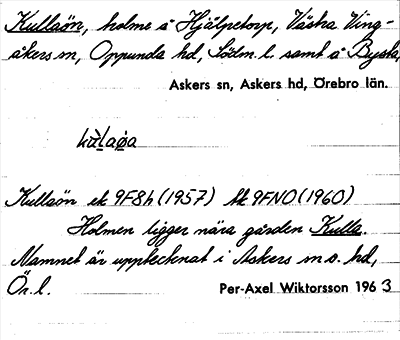 Kullaön, holme å Hjälpetorp, Västra Ving-
åkers sn, Oppunda hd, Södm. l. samt å Bysta,
Askers sn, Askers hd, Örebro län.
Kullaön ek 9F8h (1957) tk 9FNO (1960)
Holmen ligger nära gården Kulla.
Namnet är upptecknat i Askers sn o. hd,
Ör. l.
Per-Axel Wiktorsson 1963